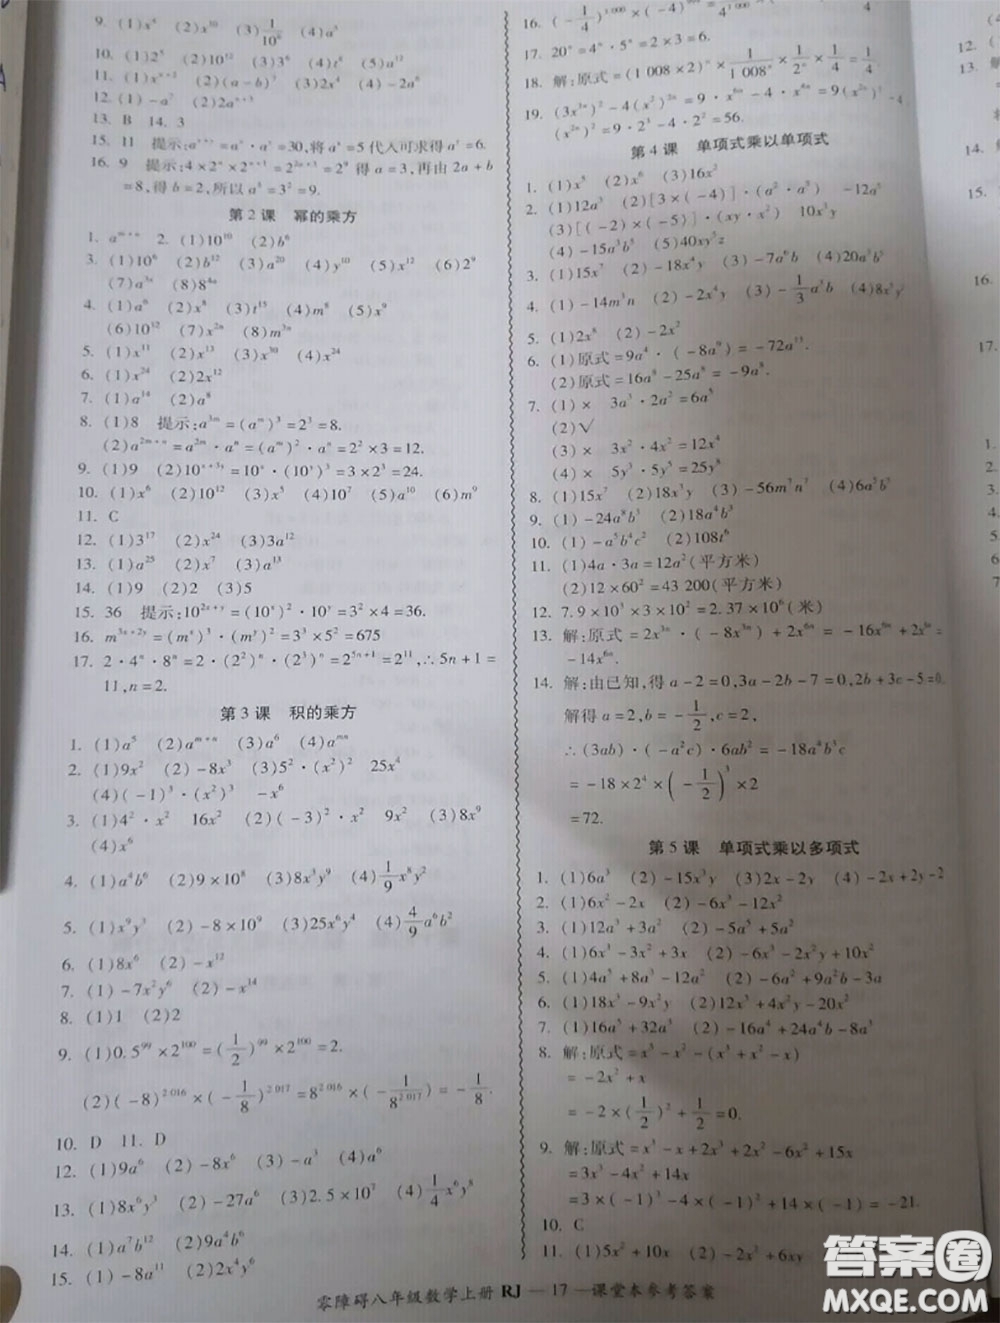 9. (1)x⁵ (2)x¹⁰ (3)1/10⁶ (4)a⁵
10. (1)x² (2)10¹² (3)3⁶ (4)t⁶ (5)x¹²
11. (1)xⁿ⁺² (2)(a-b)³ (3)2x⁵ (4)-2a⁶
12. (1)-a⁷ (2)2aⁿ⁺³
13. B 14. 3
15. 11 提示:aˣ⁺ʸ=aˣ·aʸ=30,将aˣ=5代入可求得aʸ=6.
16. 9 提示:4×2ᵃ×2ᵃ⁺¹=2²ᵃ⁺³=2⁹ 得a=3,再由2a+b
=8,得b=2,所以aᵇ=3²=9.
第2课 幂的乘方
1. aᵐ⁺ⁿ 2. (1)10¹⁰ (2)b⁶
3. (1)10⁶ (2)b¹² (3)a²⁰ (4)y¹⁰ (5)x¹² (6)2⁹
(7)a³ˢ (8)8⁴ᵃ
4. (1)a⁶ (2)x⁸ (3)t¹⁵ (4)m⁸ (5)x⁹
(6)10¹² (7)x²ⁿ (8)m³ⁿ
5. (1)x¹¹ (2)x¹³ (3)x³⁰ (4)x²⁴
6. (1)x²⁴ (2)2x¹²
7. (1)a¹⁴ (2)a⁸
8. (1)8 提示:a³ᵐ=(aᵐ)³=2³=8.
(2)a²ᵐ⁺ⁿ=a²ᵐ·aⁿ=(aᵐ)²·aⁿ=2²×3=12.
9. (1)9 (2)10ˣ⁺³ʸ=10ˣ·(10ʸ)³=3×2³=24.
10. (1)x⁶ (2)10¹² (3)x⁵ (4)10⁷ (5)a¹⁰ (6)m⁹
11. C
12. (1)3¹⁷ (2)x²⁴ (3)3a¹²
13. (1)a²⁵ (2)x⁷ (3)a¹³
14. (1)9 (2)2 (3)5
15. 36 提示:10²ˣ⁺ʸ=(10ˣ)²·10ʸ=3²×4=36.
16. m³ˣ⁺²ʸ=(mˣ)³·(mʸ)²=3³×5²=675
17. 2·4ⁿ·8ⁿ=2·(2²)ⁿ·(2³)ⁿ=2⁵ⁿ⁺¹=2¹¹,∴5n+1=
11,n=2.
第3课 积的乘方
1. (1)a⁵ (2)aᵐ⁺ⁿ (3)a⁶ (4)aᵐⁿ
2. (1)9x² (2)-8x³ (3)5²·(x²)² 25x⁴
(4)(-1)³·(x²)³ -x⁶
3. (1)4²·x² 16x² (2)(-3)²·x² 9x² (3)8x⁹
(4)x⁶
4. (1)a⁴b⁶ (2)9×10⁸ (3)8x³y⁹ (4)1/9x⁸y²
5. (1)x⁹y³ (2)-8×10⁹ (3)25x⁶y⁴ (4)4/9a⁶b²
6. (1)8x⁶ (2)-x¹²
7. (1)-7x²y⁶ (2)-x¹⁴
8. (1)1 (2)2
9. (1)0.5⁹⁹×2¹⁰⁰=(1/2)⁹⁹×2¹⁰⁰=2.
(2)(-8)²⁰¹⁶×(-1/8)²⁰¹⁷=8²⁰¹⁶×(-1/8²⁰¹⁷)=-1/8.
10. D 11. D
12. (1)9a⁶ (2)-8x⁶ (3)-a³ (4)a⁶
13. (1)8x⁶y³ (2)-27a⁶ (3)2.5×10⁷ (4)1/4x⁶y⁸
14. (1)a⁷b¹² (2)9a⁴b⁶
15. (1)-8a¹¹ (2)5a¹²
16. (-1/4)¹⁰⁰⁰×(-4)
17. 20ⁿ=4ⁿ·5ⁿ=2×3=6.
18. 解:原式=(1 008×2)ⁿ×1/1 008ⁿ×1/2ⁿ×1/4=1/4
19. (3x³ⁿ)²-4(x²)³ⁿ=9·x⁶ⁿ-4·x⁶ⁿ=9(x²ⁿ)³-4
(x²ⁿ)³=9·2³-4·2³=56.
第4课 单项式乘以单项式
1. (1)x⁵ (2)x⁶ (3)16x²
2. (1)12a³ (2)[3×(-4)]·(a²·a³) -12a⁵
(3)[(-2)×(-5)]·(xy·x²) 10x³y
(4)-15a³b⁵ (5)40xy⁵z
3. (1)15x⁷ (2)-18x⁴y (3)-7a⁶b (4)20a³b³
4. (1)-14m³n (2)-2x⁴y (3)-1/3a³b (4)8x³y²
5. (1)2x⁸ (2)-2x²
6. (1)原式=9a⁴·(-8a⁹)=-72a¹³.
(2)原式=16a⁸-25a⁸=-9a⁸.
7. (1)× 3a³·2a²=6a⁵
(2)√
(3)× 3x²·4x²=12x⁴
(4)× 5y³·5y⁵=25y⁸
8. (1)15x⁷ (2)18x³y (3)-56m⁷n⁷ (4)6a⁵b³
9. (1)-24a⁸b³ (2)18a⁴b³
10. (1)-a⁵b⁴c² (2)108t⁶
11. (1)4a·3a=12a²(平方米)
(2)12×60²=43 200(平方米)
12. 7.9×10³×3×10²=2.37×10⁶(米)
13. 解:原式=2x³ⁿ·(-8x³ⁿ)+2x⁶ⁿ=-16x⁶ⁿ+2x⁶ⁿ=
-14x⁶ⁿ.
14. 解:由已知,得a-2=0,3a-2b-7=0,2b+3c-5=0.
解得a=2,b=-1/2,c=2,
∴(3ab)·(-a²c)·6ab²=-18a⁴b³c
=-18×2⁴×(-1/2)³×2
=72.
第5课 单项式乘以多项式
1. (1)6a³ (2)-15x³y (3)2x-2x² (4)-2x+2y
2. (1)6x²-2x (2)-6x³-12x²
3. (1)12a³+3a² (2)-5a⁵+5a²
4. (1)6x³-3x²+3x (2)-6x³-2x²y+10x
5. (1)4a⁵+8a³-12a² (2)-6a²+9a²b-3a
6. (1)18x³-9x²y (2)12x³+4x²y-20x²
7. (1)16a⁵+32a³ (2)-16a⁴+24a⁴b-8a³
8. 解:原式=x³-x²-(x³+x²-x)
=-2x²+x
=-2×(1/2)²+1/2=0.
9. 解:原式=x³-x+2x³+2x²-6x²+15x
=3x³-4x²+14x
=3×(-1)³-4×(-1)²+14×(-1)=-21.
10. C
11. (1)5x²+10x (2)-2x²+6xy
零障碍八年级数学上册 RJ —17—课堂本参考答案
答案圈
MXQE.COM